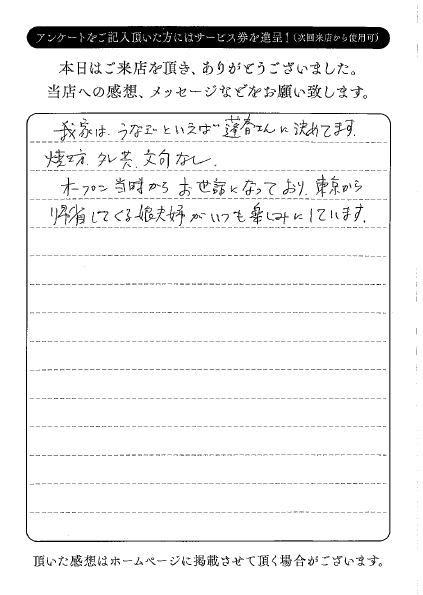 アンケートをご記入頂いた方にはサービス券を進呈！(次回来店から使用可)
本日はご来店を頂き、ありがとうございました。
当店への感想、メッセージなどをお願い致します。
我家は、うなぎといえば蓮香さんに決めてます。
焼き方、タレ共、文句なし。
オープン当時からお世話になっており、東京から
帰省してくる娘夫婦がいつも楽しみにしています。
頂いた感想はホームページに掲載させて頂く場合がございます。